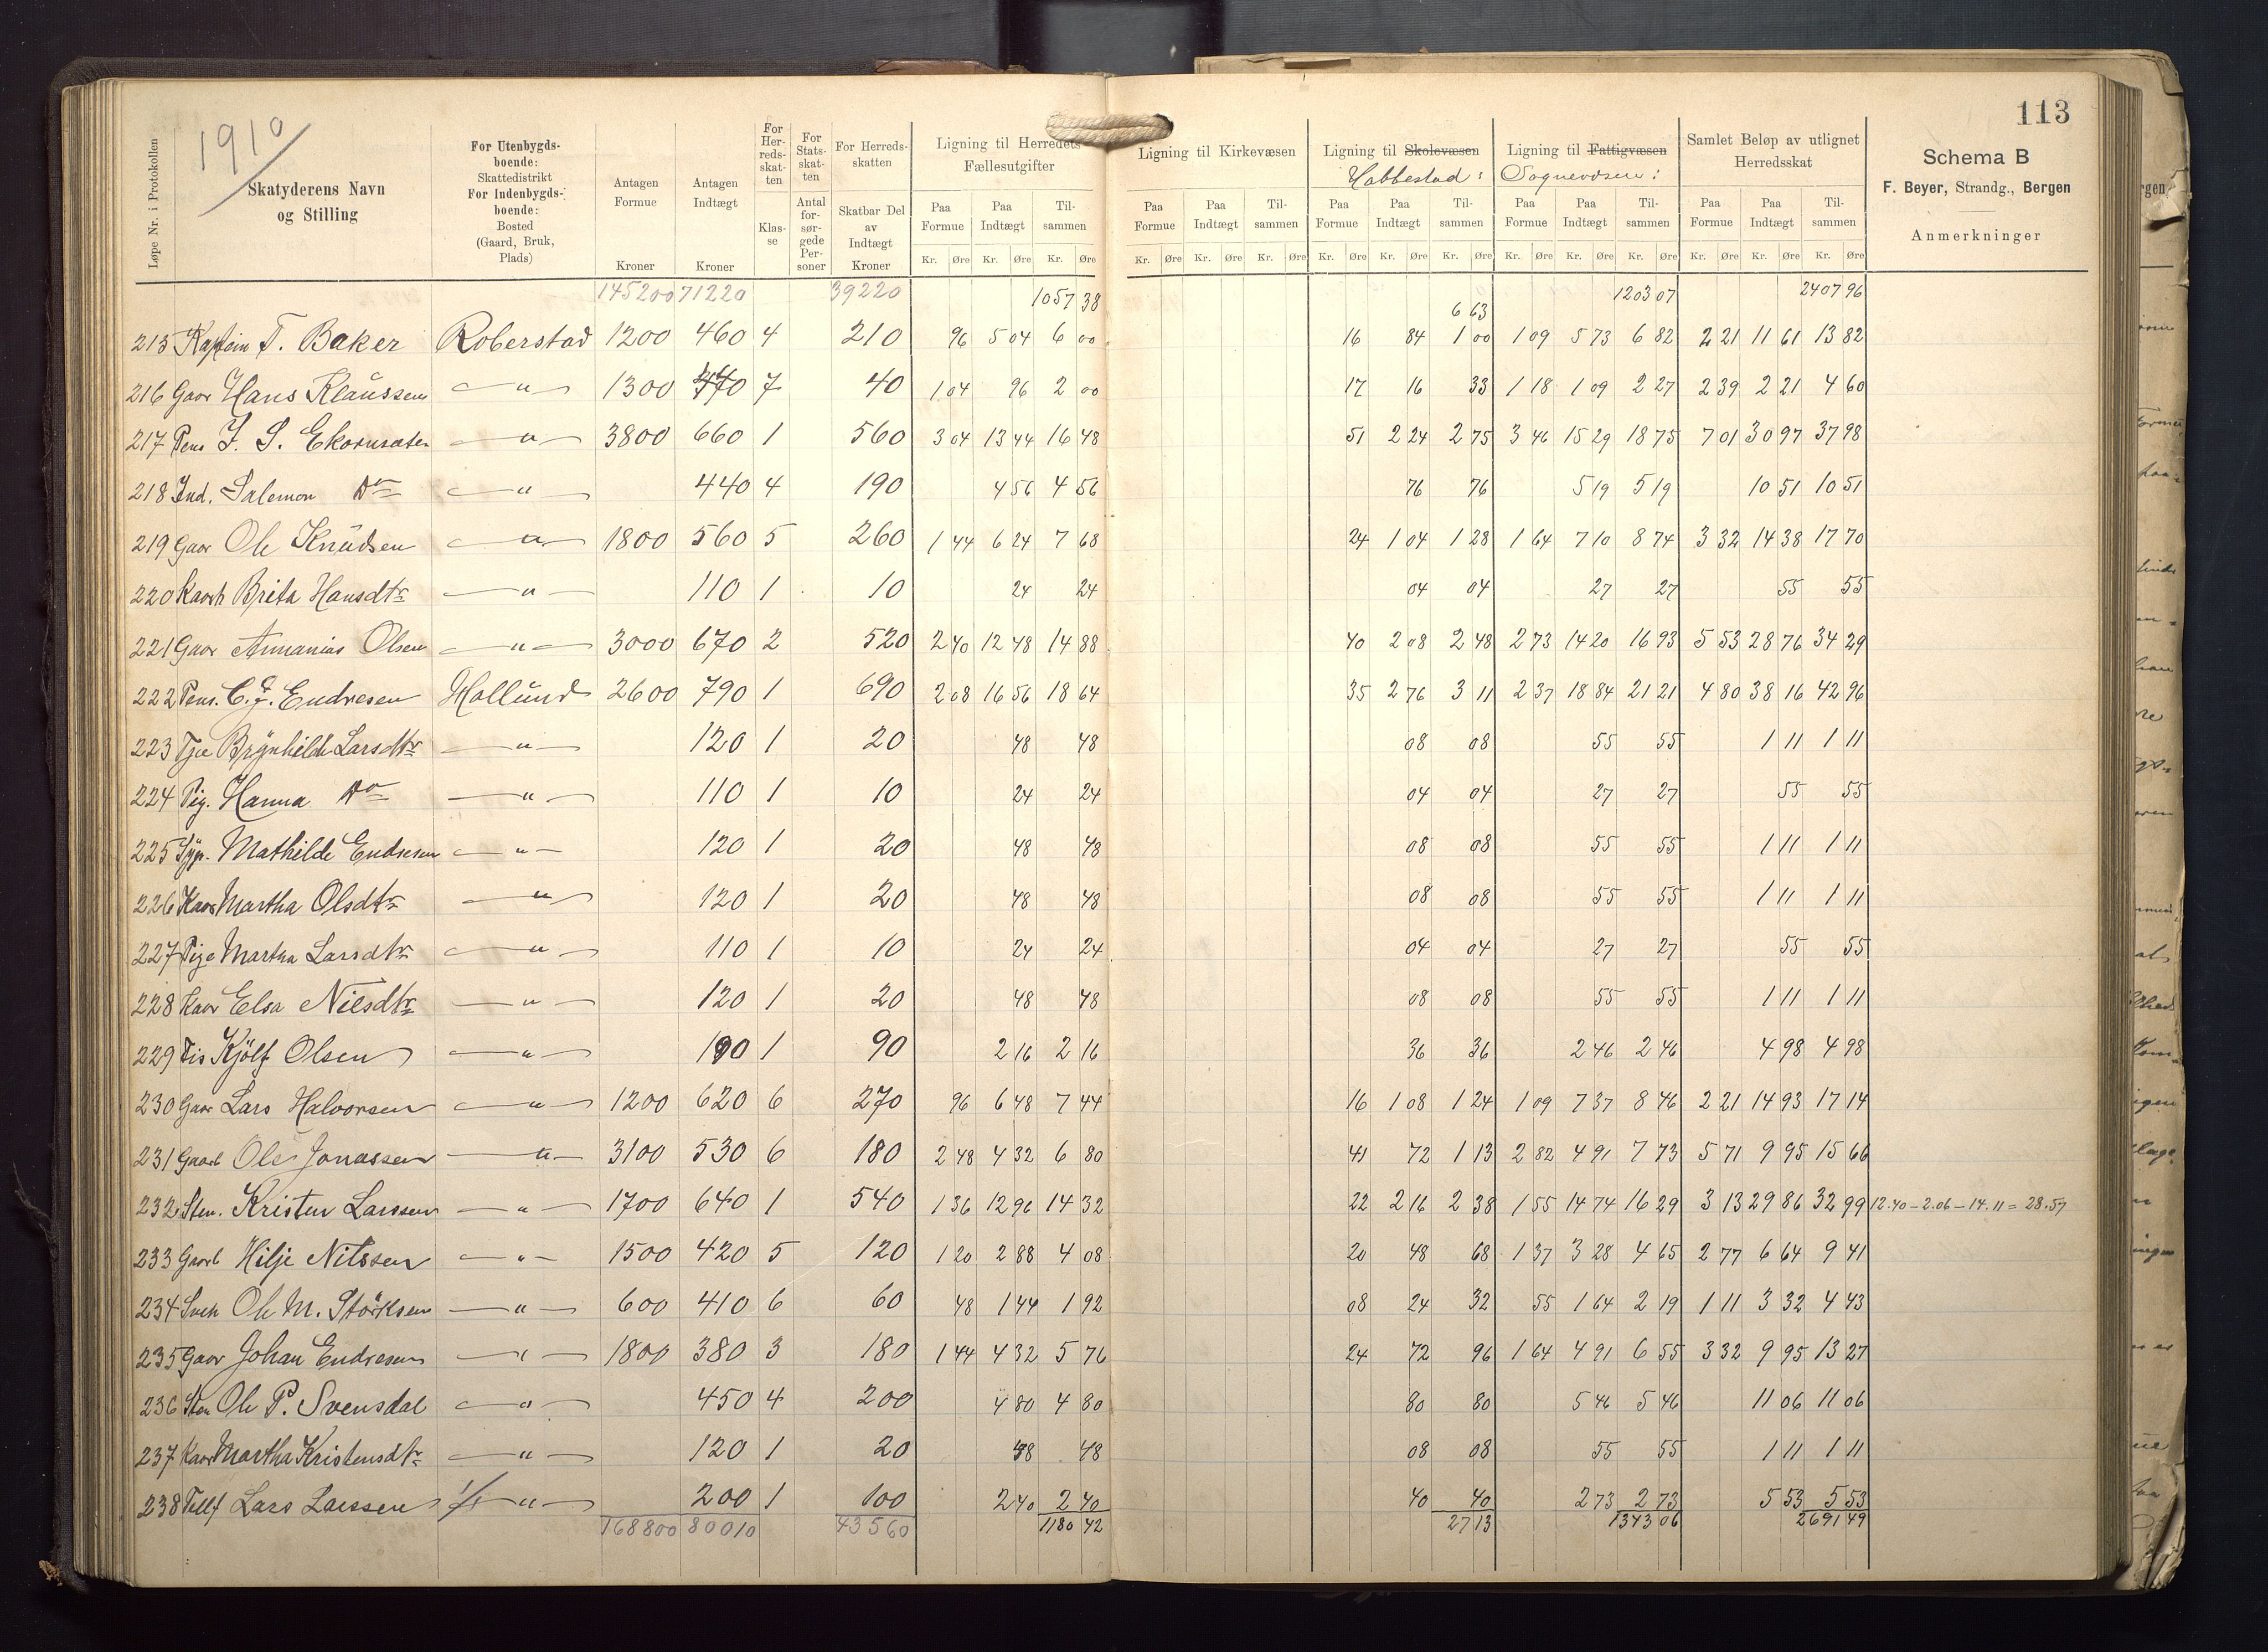 113
1910
Løpe Nr. i Protokollen
Skatyderens Navn og Stilling
For Utenbygdsboende: Skattedistrikt For Indenbygdsboende: Bosted (Gaard, Bruk, Plads)
Antagen Formue Kroner
Antagen Indtægt Kroner
For Herredsskatten Klasse
For Statsskatten Antal forsørgede Personer
For Herredsskatten Skatbar Del av Indtægt Kroner
Ligning til Herredets Fællesutgifter
Ligning til Kirkevæsen
Ligning til Skolevæsen Habbestad:
Ligning til Fattigvæsen Sognevæsen:
Samlet Beløp av utlignet Herredsskat
Schema B
F. Beyer, Strandg., Bergen
Anmerkninger
Paa Formue Paa Indtægt Tilsammen Paa Formue Paa Indtægt Tilsammen Paa Formue Paa Indtægt Tilsammen Paa Formue Paa Indtægt Tilsammen Paa Formue Paa Indtægt Tilsammen
Kr. Øre Kr. Øre Kr. Øre Kr. Øre Kr. Øre Kr. Øre Kr. Øre Kr. Øre Kr. Øre Kr. Øre Kr. Øre Kr. Øre Kr. Øre Kr. Øre Kr. Øre
145200 71220 39220 1057 38 6 63 1203 07 2407 96
215 Kaptein T. Baker Roberstad 1200 460 4 210 96 5 04 6 00 16 84 1 00 1 09 5 73 6 82 2 21 11 61 13 82
216 Gaar Hans Klaussen — " — 1300 470 7 40 1 04 96 2 00 17 16 33 1 18 1 09 2 27 2 39 2 21 4 60
217 Pens J. S. Ekornsæter — " — 3800 660 1 560 3 04 13 44 16 48 51 2 24 2 75 3 46 15 29 18 75 7 01 30 97 37 98
218 Ind. Salemon Do — " — 440 4 190 4 56 4 56 76 76 5 19 5 19 10 51 10 51
219 Gaar Ole Knudsen — " — 1800 560 5 260 1 44 6 24 7 68 24 1 04 1 28 1 64 7 10 8 74 3 32 14 38 17 70
220 Kaarb Brita Hansdtr — " — 110 1 10 24 24 04 04 27 27 55 55
221 Gaar Annanias Olsen — " — 3000 670 2 520 2 40 12 48 14 88 40 2 08 2 48 2 73 14 20 16 93 5 53 28 76 34 29
222 Pens. C. J. Endresen Hallund 2600 790 1 690 2 08 16 56 18 64 35 2 76 3 11 2 37 18 84 21 21 4 80 38 16 42 96
223 Tje Brynhilde Larsdtr — " — 120 1 20 48 48 08 08 55 55 1 11 1 11
224 Pig. Hanna Do — " — 110 1 10 24 24 04 04 27 27 55 55
225 Syp. Mathilde Endresen — " — 120 1 20 48 48 08 08 55 55 1 11 1 11
226 Kaar Martha Olsdtr — " — 120 1 20 48 48 08 08 55 55 1 11 1 11
227 Pige Martha Larsdtr — " — 110 1 10 24 24 04 04 27 27 55 55
228 Kaar Elsa Nilsdtr — " — 120 1 20 48 48 08 08 55 55 1 11 1 11
229 Fis Kjölf Olsen — " — 190 1 90 2 16 2 16 36 36 2 46 2 46 4 98 4 98
230 Gaar Lars Halvorsen — " — 1200 620 6 270 96 6 48 7 44 16 1 08 1 24 1 09 7 37 8 46 2 21 14 93 17 14
231 Gaarb Ole Jonassen — " — 3100 530 6 180 2 48 4 32 6 80 41 72 1 13 2 82 4 91 7 73 5 71 9 95 15 66
232 Sten. Kristen Larssen — " — 1700 640 1 540 1 36 12 96 14 32 22 2 16 2 38 1 55 14 74 16 29 3 13 29 86 32 99 12.40 – 2.06 – 14.11 = 28.57
233 Gaarb Hilje Nilssen — " — 1500 420 5 120 1 20 2 88 4 08 20 48 68 1 37 3 28 4 65 2 77 6 64 9 41
234 Ole M. Störksen — " — 600 410 6 60 48 1 44 1 92 08 24 32 55 1 64 2 19 1 11 3 32 4 43
235 Gaar Johan Endresen — " — 1800 380 3 180 1 44 4 32 5 76 24 72 96 1 64 4 91 6 55 3 32 9 95 13 27
236 Sten Ole P. Svensdal — " — 450 4 200 4 80 4 80 80 80 5 46 5 46 11 06 11 06
237 Kaar Martha Kristensdtr — " — 120 1 20 48 48 08 08 55 55 1 11 1 11
238 Tellf Lars Larssen — " — 200 1 100 2 40 2 40 40 40 2 73 2 73 5 53 5 53
168800 80010 43560 1180 42 27 13 1343 06 2691 49